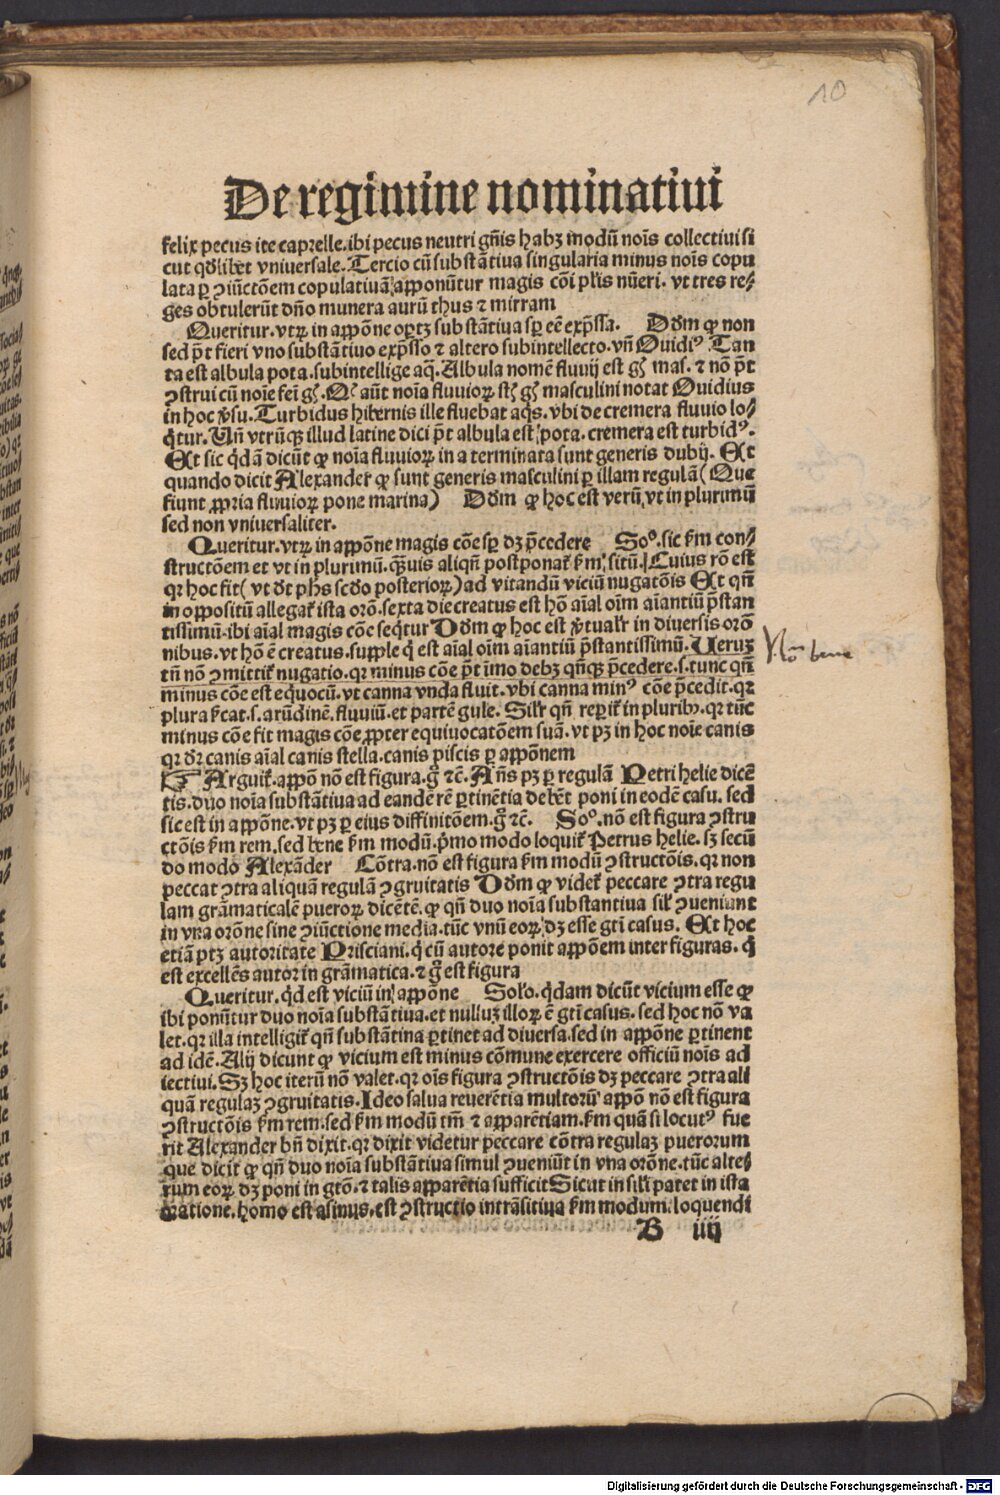 10
De regimine nominatiui
felix pecus ite caprelle.ibi pecus neutri gñis habꝫ modũ noĩs collectiui si
cut qđlibet vniuersale.Tercio cũ substãtiua singularia minus noĩs copu
lata ꝑ ꝯiũctõem copulatiuã apponũtur magis cõi plĩs nũeri. vt tres re⸗
ges obtulerũt dño munera aurũ thus ⁊ mirram
Queritur.vtꝝ in appõne oportꝫ substãtiua sꝑ eẽ exp̃ssa. Dõm ꝙ non
sed p̃t fieri vno substãtiuo exp̃sso ⁊ altero subintellecto.vñ Ouidiꝰ Tan
ta est albula pota.subintellige aq̃.Albula nomẽ fluuij est gñ̃ mas. ⁊ nõ p̃t
ꝯstrui cũ noĩe fei gñ̃. aũt noĩa fluuioꝝ st̃ gñ̃ masculini notat Ouidius
in hoc ṽsu.Turbidus hibernis ille fluebat aq̃s.vbi de cremera fluuio lo⸗
q̃tur.Uñ vtrũqꝫ illud latine dici p̃t albula est pota.cremera est turbidꝰ.
Et sic q̃dã dicũt ꝙ noĩa fluuioꝝ in a terminata sunt generis dubij. Et
quando dicit Alexander ꝙ sunt generis masculini ꝑ illam regulã (Que
fiunt ꝓpria fluuioꝝ pone marina) Dõm ꝙ hoc est verũ vt in plurimũ
sed non vniuersaliter.
Queritur.vtꝝ in appõne magis cõe sꝑ dꝫ p̃cedere Soꝰ.sic ẜm con⸗
structõem et vt in plurimũ.q̃uis aliqñ postponat̃ ẜm situ.Cuius rõ est
qꝛ hoc fit( vt dt̃ phs scđo posterioꝝ)ad vitandũ viciũ nugatõis Et qñ
in oppositũ allegat̃ ista orõ.sexta die creatus est hõ aĩal oĩm aĩantiũ p̃stan
tissimũ.ibi aĩal magis cõe seq̃tur Dõm ꝙ hoc est ṽtualr̃ in diuersis orõ
nibus.vt hõ ẽ creatus.supple q̃ est aĩal oĩm aĩantiũ p̃stantissimũ. Ueruꝫ
tñ nõ ꝯmittit̃ nugatio.qꝛ minus cõe p̃t ĩmo debꝫ qñqꝫ p̃cedere.s.tunc qñ
minus cõe est equocũ.vt canna vnda fluit.vbi canna minꝰ cõe p̃cedit.qꝛ
plura ẜcat.s.arũdinẽ.fluuiũ.et partẽ gule. Silr̃ qñ reperit̃ in pluribꝰ.qꝛ tũc
minus cõe fit magis cõe ꝓpter equiuocatõem suã.vt pꝫ in hoc noĩe canis
qꝛ dr̃ canis aĩal canis stella.canis piscis ꝑ appõnem
Arguit̃.appõ nõ est figura.g̃ ⁊c̃.Añs pꝫ ꝑ regulã Petri helie dicẽ
tis.duo noĩa substãtiua ad eandẽ rẽ ꝑtinẽtia debẽt poni in eodẽ casu. sed
sic est in appõne.vt pꝫ ꝑ eius diffinitõem.g̃ ⁊c̃. Soꝰ.nõ est figura ꝯstru
ctõis ẜm rem.sed bene ẜm modũ.p̃mo modo loquit̃ Petrus helie.sꝫ secũ
do modo Alexãder Cõtra.nõ est figura ẜm modũ ꝯstructõis.qꝛ non
peccat ꝯtra aliquã regulã ꝯgruitatis Dõm ꝙ videt̃ peccare ꝯtra regu
lam grãmaticalẽ pueroꝝ dicẽtẽ.ꝙ qñ duo noĩa substantiua sil̃ ꝯueniunt
in vna orõne sine ꝯiũctione media.tũc vnũ eoꝝ dꝫ esse gt̃i casus. Et hoc
etiã ptꝫ autoritate Prisciani.q̃ cũ autore ponit appõem inter figuras. q̃
est excellẽs autor in grãmatica.⁊ g̃ est figura
Queritur.q̃d est viciũ in appõne Solo.q̃dam dicũt vicium esse ꝙ
ibi ponũtur duo noĩa substãtiua.et nulluꝫ illoꝝ ẽ gt̃i casus. sed hoc nõ va
let.qꝛ illa intelligit̃ qñ substãtiua ꝑtinet ad diuersa.sed in appõne ꝑtinent
ad idẽ.Alij dicunt ꝙ vicium est minus cõmune exercere officiũ noĩs ad
iectiui.Sꝫ hoc iterũ nõ valet.qꝛ oĩs figura ꝯstructõis dꝫ peccare ꝯtra ali
quã regulaꝫ ꝯgruitatis.Ideo salua reuerẽtia multorũ appõ nõ est figura
ꝯstructõis ẜm rem.sed ẜm modũ tm̃ ⁊ apparẽtiam.ẜm quã si locutꝰ fue
rit Alexander bñ dixit.qꝛ dixit videtur peccare cõtra regulaꝫ puerorum
que dicit ꝙ qñ duo noĩa substãtiua simul ꝯueniũt in vna orõne.tũc alte⸗
rum eoꝝ dꝫ poni in gt̃õ.⁊ talis apparẽtia sufficit Sicut in sil̃i patet in ista
oratione.homo est asinus.est ꝯstructio intrãsitiua ẜm modum.loquendi
B iiij
Nõ bene
Digitalisierung gefördert durch die Deutsche Forschungsgemeinschaft - DFG